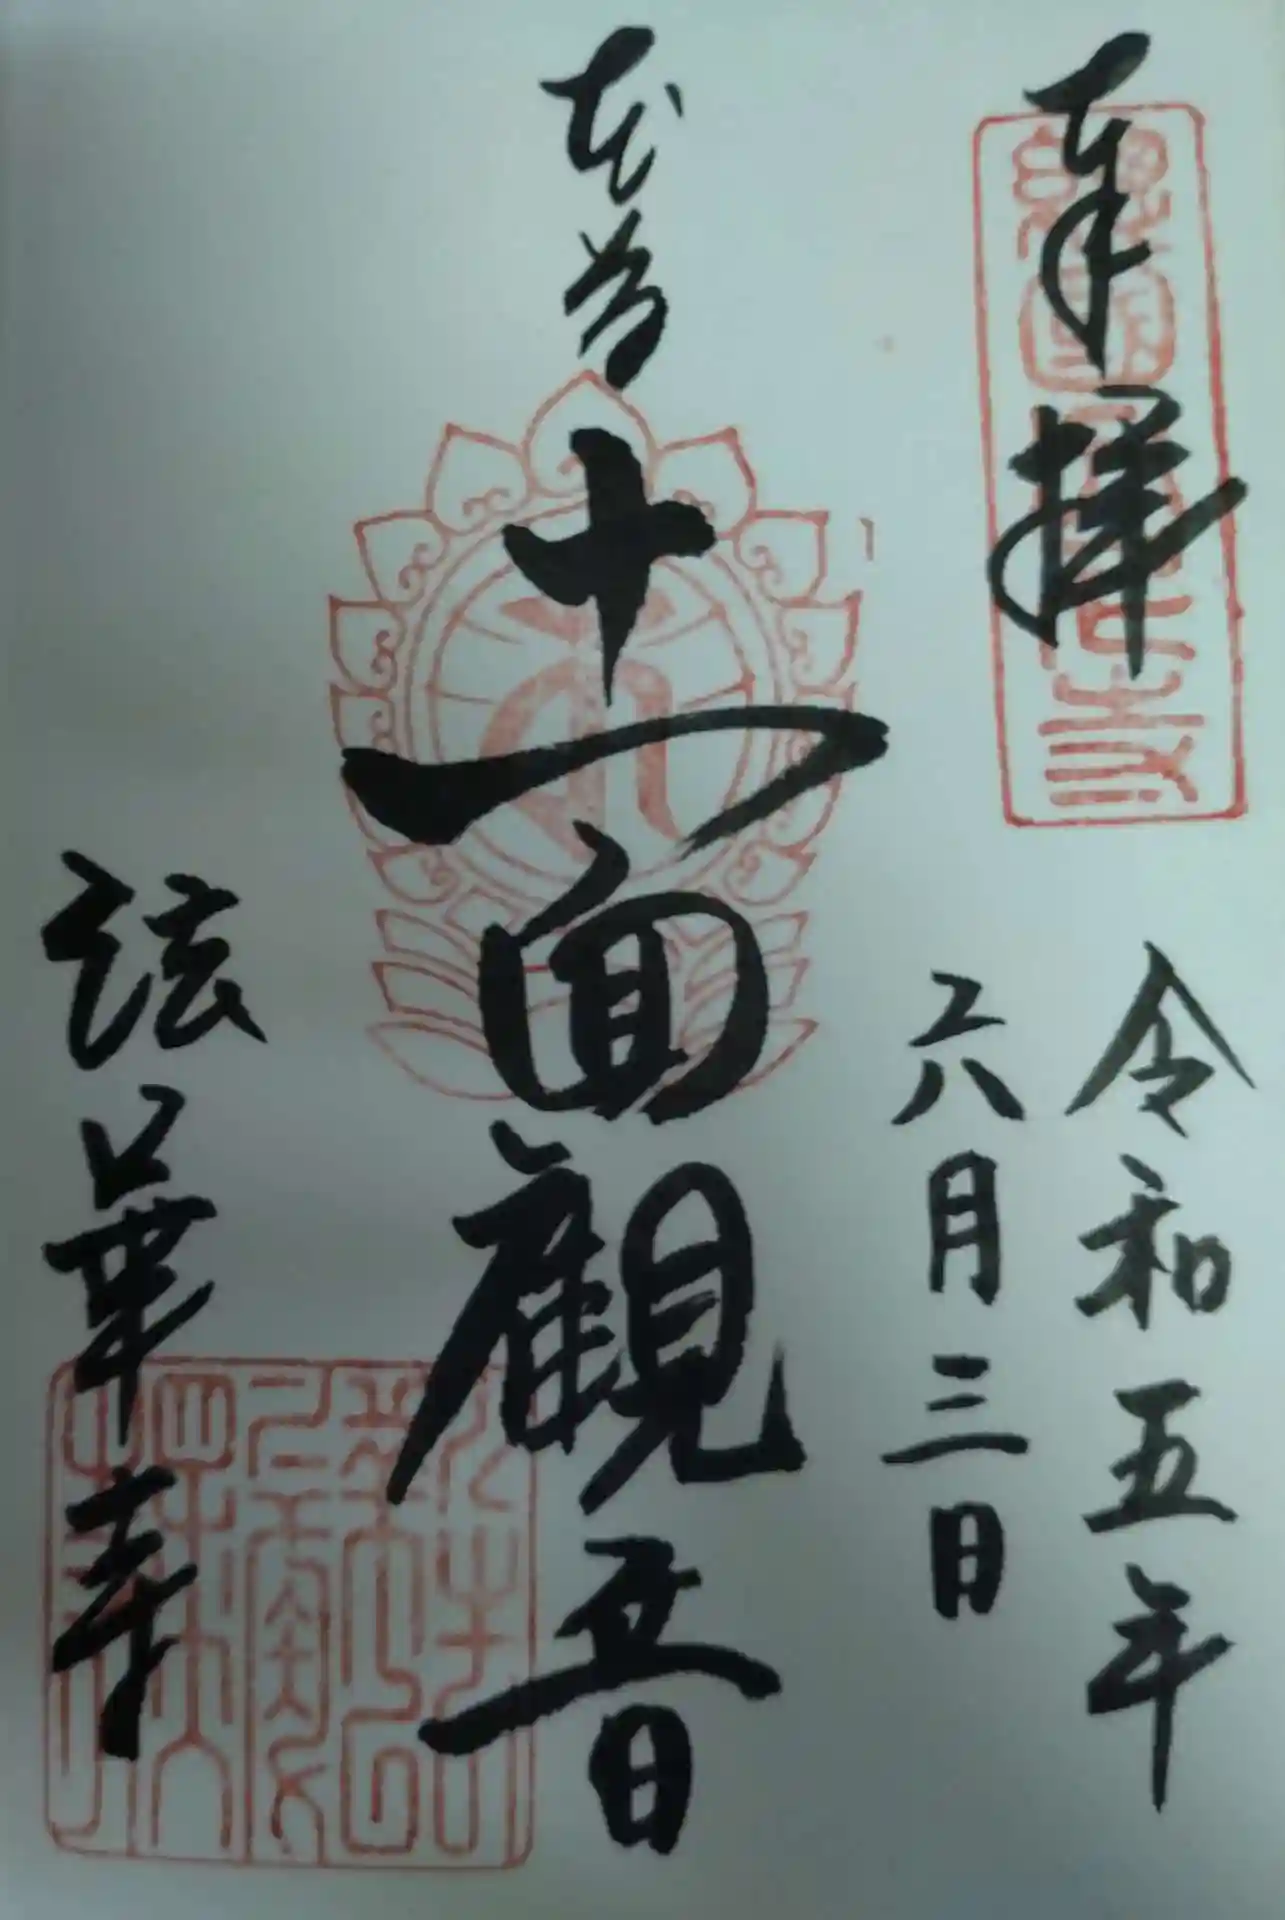 奉拝
令和五年
六月三日
本尊
十一面觀音
法華寺